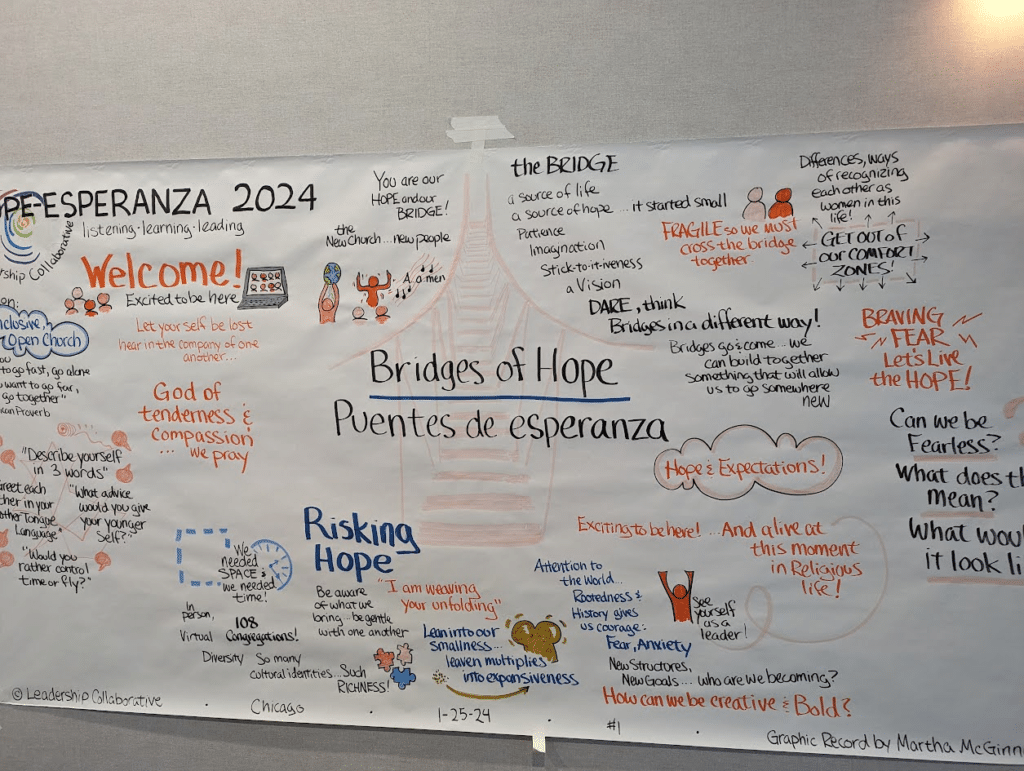 PE-ESPERANZA 2024
listening·learning·leading
rship Collaborative
Welcome!
Excited to be here
Let your self be lost
hear in the company of one
another...
nclusive,
Open Church
to go fast, go alone
want to go far,
go together"
can Proverb
God of
tenderness &
compassion
... we
pray
"Describe yourself
in 3 words"
reet each
ther in your
other Tongue
Language"
"What advice
would you give
your younger
self?"
"Would you
rather control
time or fly?"
You are our
HOPE and our
BRIDGE!
the
New Church... new people
A a men
the BRIDGE
a source of life
a source of hope ...it started small
Patience
Imagnation
Stick-to-it-iveness
a Vision
FRAGILE so we must
cross the bridge
together
Differences, ways
of recognizing
each other as
women in this
life!
GET OUT of
our COMFORT
ZONES!
DARE, think
Bridges in a different way!
Bridges go & come... we
can build together
something that will allow
us to go somewhere
new
BRAVING
FEAR
Let's Live
the HOPE!
Bridges of Hope
Puentes de esperanza
Hope & Expectations!
Can we be
Fearless?
What does th
mean?
What wou
it look li
We
needed
SPACE &
we needed
time!
In
person,
Virtual
108
Congregations!
Diversity
So many
cultural identities... Such
RICHNESS!
Risking
Hope
Be aware
of what we
bring... be gentle
with one another
"I am weaving
your unfolding"
Lean into our
smallness...
leaven multiplies
into expansiveness
Attention to
the World...
Rootedness &
History gives
us courage:
Fear, Anxiety
New Structores,
New Goals... who are we becoming?
How can we be creative & Bold?
Exciting to be here! ...And alive at
this moment
in Religious
life!
See
yourself
as a
leader!
© Leadership Collaborative · Chicago · 1-25-24 · #1 ·
Graphic Record by Martha McGinn